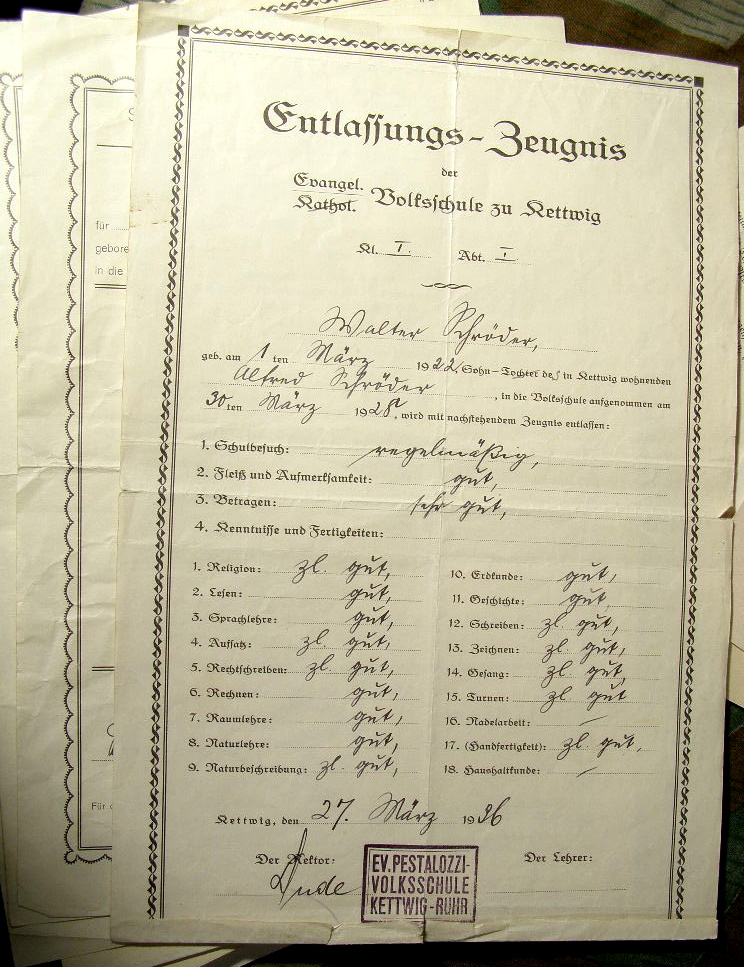 Entlassungs-Zeugnis
der
Evangel.
Kathol. Volksschule zu Kettwig
Kl. I. Abt. I
Walter Schröder,
geb. am 1 ten März 1922, Sohn-Tochter des in Kettwig wohnenden
Alfred Schröder, in die Volksschule aufgenommen am
30 ten März 1928, wird mit nachstehendem Zeugnis entlassen:
1. Schulbesuch: regelmäßig,
2. Fleiß und Aufmerksamkeit: gut,
3. Betragen: sehr gut,
4. Kenntnisse und Fertigkeiten:
1. Religion: zl. gut,
2. Lesen: gut,
3. Sprachlehre: gut,
4. Aufsatz: zl. gut,
5. Rechtschreiben: zl. gut,
6. Rechnen: gut,
7. Raumlehre: gut,
8. Naturlehre: gut,
9. Naturbeschreibung: zl. gut,
10. Erdkunde: gut,
11. Geschichte: gut,
12. Schreiben: zl. gut,
13. Zeichnen: zl. gut,
14. Gesang: zl. gut,
15. Turnen: zl. gut
16. Nadelarbeit: —
17. (Handfertigkeit): zl. gut.
18. Haushaltkunde: —
Kettwig, den 27. März 1936
Der Rektor: Der Lehrer:
EV. PESTALOZZI-
VOLKSSCHULE
KETTWIG-RUHR
für
gebore
in die
Für